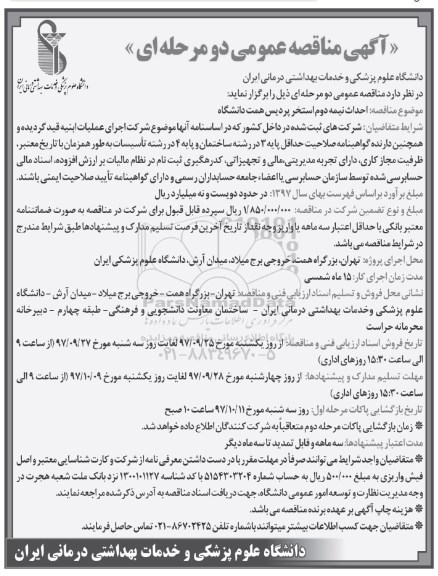 « آگهی مناقصه عمومی دو مرحله ای »
دانشگاه علوم پزشکی و خدمات بهداشتی درمانی ایران
در نظر دارد مناقصه عمومی دو مرحله ای ذیل را برگزار نماید:
موضوع مناقصه: احداث نیمه دوم استخر پردیس همت دانشگاه
شرایط متقاضیان: شرکت های ثبت شده در داخل کشور که در اساسنامه آنها موضوع شرکت اجرای عملیات ابنیه قید گردیده و
همچنین دارنده گواهینامه صلاحیت حداقل پایه ۳ در رشته ساختمان و پایه ۴ در رشته تأسیسات به طور همزمان با تاریخ معتبر،
ظرفیت مجاز کاری، دارای تجربه مدیریتی، مالی و تجهیزاتی، کدرهگیری ثبت نام در نظام مالیات بر ارزش افزوده، اسناد مالی
حسابرسی شده توسط سازمان حسابرسی یا اعضاء جامعه حسابداران رسمی و دارای گواهینامه تأیید صلاحیت ایمنی باشند.
مبلغ برآورد براساس فهرست بهای سال ۱۳۹۷: در حدود دویست و نه میلیارد ریال
مبلغ و نوع تضمین شرکت در مناقصه: ۱/۸۵۰/۰۰۰/۰۰۰ ریال سپرده قابل قبول برای شرکت در مناقصه به صورت ضمانتنامه
معتبر بانکی با حداقل اعتبار سه ماهه یا واریز وجه نقد از تاریخ آخرین فرصت تسلیم مدارک و پیشنهادها طبق شرایط مندرج
در شرایط مناقصه می باشد.
محل اجرای پروژه: تهران، بزرگراه همت، خروجی برج میلاد، میدان آرش، دانشگاه علوم پزشکی ایران
مدت زمان اجرای کار: ۱۵ ماه شمسی
نشانی محل فروش و تسلیم اسناد ارزیابی فنی و مناقصه: تهران - بزرگراه همت - خروجی برج میلاد - میدان آرش - دانشگاه
علوم پزشکی وخدمات بهداشتی درمانی ایران - ساختمان معاونت دانشجویی و فرهنگی - طبقه چهارم - دبیرخانه
محرمانه حراست
تاریخ فروش اسناد ارزیابی فنی و مناقصه: از روز یکشنبه مورخ ۹۷/۰۹/۲۵ لغایت روز سه شنبه مورخ ۹۷/۰۹/۲۷ (از ساعت ۹
الی ساعت ۱۵:۳۰ روزهای اداری)
مهلت تسلیم مدارک و پیشنهادها: از روز چهارشنبه مورخ ۹۷/۰۹/۲۸ لغایت روز یکشنبه مورخ ۹۷/۱۰/۰۹ (از ساعت ۹ الی
ساعت ۱۵:۳۰ روزهای اداری)
تاریخ بازگشایی پاکات مرحله اول: روز سه شنبه مورخ ۹۷/۱۰/۱۱ ساعت ۱۰ صبح
* زمان بازگشایی پاکات مرحله دوم متعاقباً به شرکت کنندگان اطلاع داده خواهد شد.
مدت اعتبار پیشنهادها: سه ماهه و قابل تمدید تا سه ماه دیگر
* متقاضیان واجد شرایط می توانند صرفاً در مهلت مقرر با در دست داشتن معرفی نامه از شرکت و کارت شناسایی معتبر و اصل
فیش واریزی به مبلغ ۵۰۰/۰۰۰ ریال به حساب شماره ۵۱۵۴۳۰۳۲۰۴ با کد شناسه ۱۳۰۰۱۰۱۱۲۷ نزد بانک ملت شعبه هجرت در
وجه مدیریت نظارت و توسعه امور عمومی دانشگاه، جهت دریافت اسناد مناقصه به آدرس ذکر شده مراجعه نمایند.
* هزینه چاپ آگهی بر عهده برنده مناقصه می باشد.
* متقاضیان جهت کسب اطلاعات بیشتر میتوانند باشماره تلفن ۸۶۷۰۲۴۲۵-۰۲۱ تماس حاصل فرمایند.
دانشگاه علوم پزشکی و خدمات بهداشتی درمانی ایران
ParsNamadData
۰۲۱-۸۸۳۴۹۶۷۰-۵